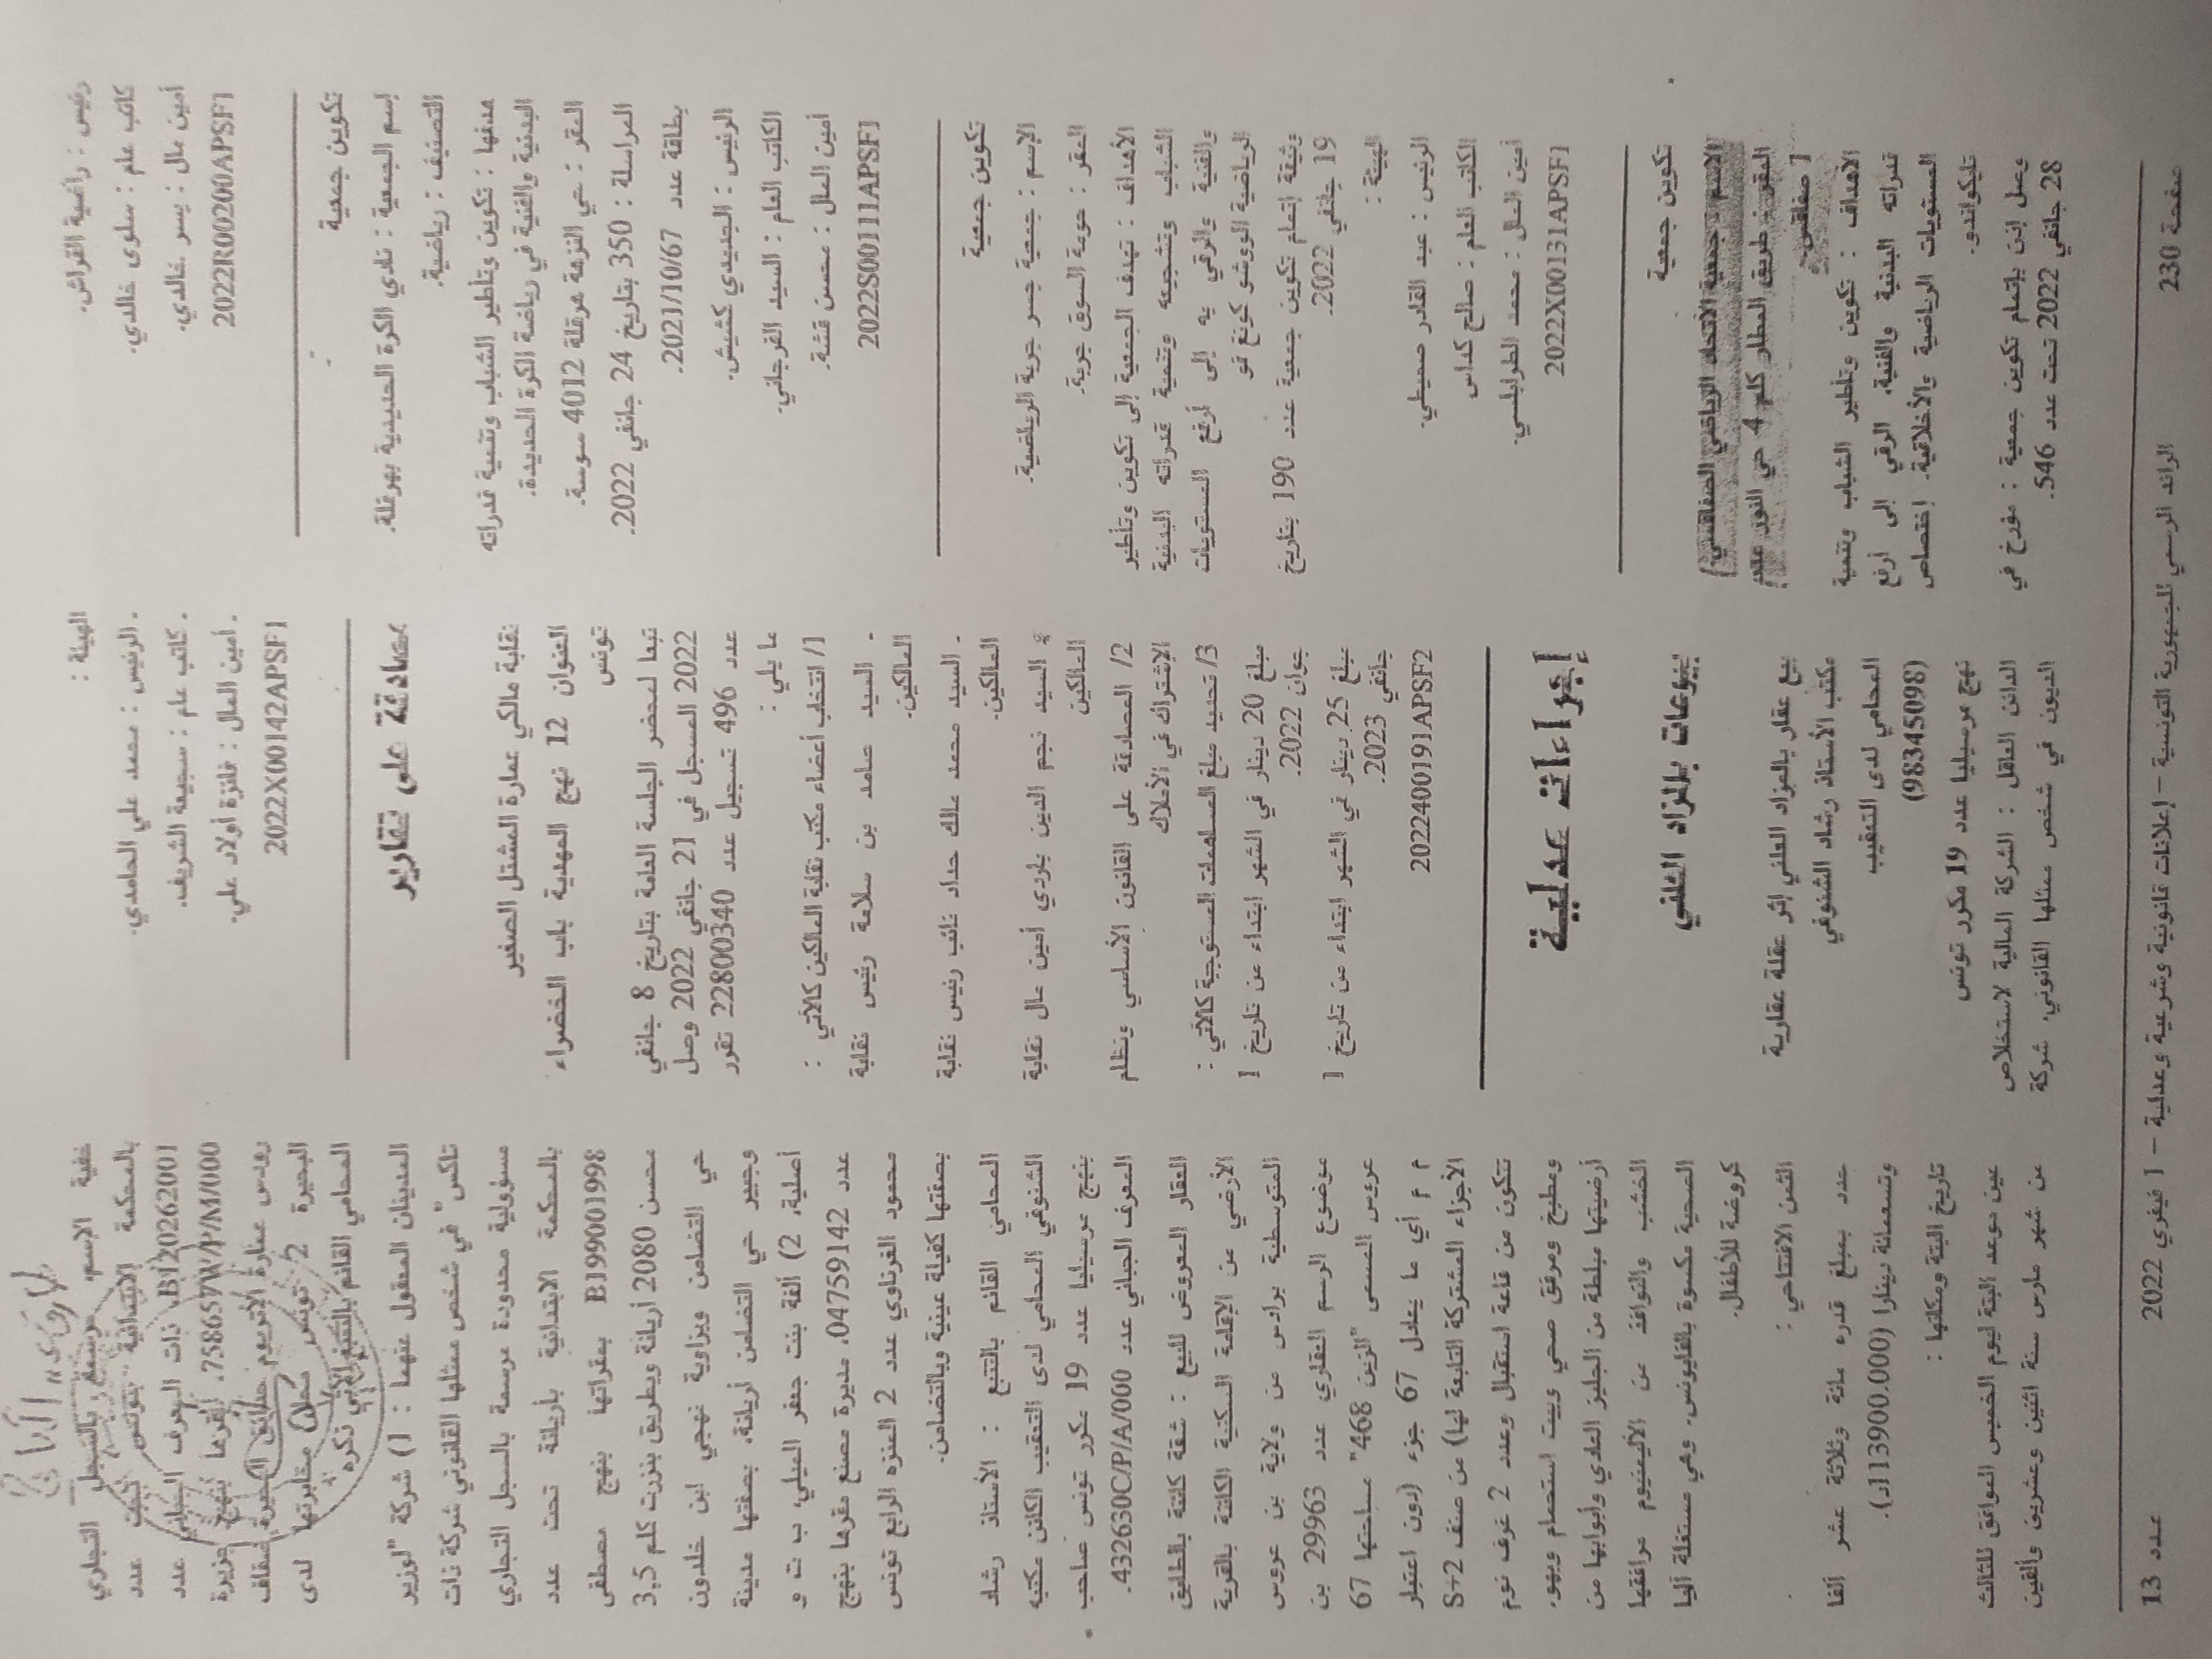 رئيس : راضية القراش.
كاتب عام : سلوى خالدي.
أمين مال : يسر خالدي.
2022R00200APSF1
تكوين جمعية
إسم الجمعية : نادي الكرة الحديدية بهرقلة.
التصنيف : رياضية.
هدفها : تكوين وتأطير الشباب وتنمية قدراته
البدنية والفنية في رياضة الكرة الحديدة.
المقر : حي النزهة هرقلة 4012 سوسة.
المراسلة : 350 بتاريخ 24 جانفي 2022.
بطاقة عدد 2021/10/67.
الرئيس : الجديدي كشيش.
الكاتب العام : السيد الفرجاني.
أمين المال : محسن قنة.
2022S00111APSF1
تكوين جمعية
الإسم : جمعية جسر جربة الرياضية.
المقر : حومة السوق جربة.
الأهداف : تهدف الجمعية إلى تكوين وتأطير
الشباب وتشجيعه وتنمية قدراته البدنية
والفنية والرقي به إلى أرفع المستويات
الرياضية الووشو كونغ فو
وثيقة إتمام تكوين جمعية عدد 190 بتاريخ
19 جانفي 2022.
الهيئة :
الرئيس : عبد القادر صميطي.
الكاتب العام : صالح كداس
أمين المال : محمد الطرابلسي.
2022X00131APSF1
تكوين جمعية
الإسم : جمعية الاتحاد الرياضي الصفاقسي
المقر : طريق المطار كلم 4 حي النور عدد
1 صفاقس
الأهداف : تكوين وتأطير الشباب وتنمية
قدراته البدنية والفنية. الرقي إلى أرفع
المستويات الرياضية والأخلاقية. إختصاص
تايكواندو.
وصل إبن بإتمام تكوين جمعية : مؤرخ في
28 جانفي 2022 تحت عدد 546.
الهيئة :
- الرئيس : محمد علي الحامدي.
- كاتب عام : سجيعة الشريف.
- أمين المال : فائزة أولاد علي.
2022X00142APSF1
مصادقة على تقارير
نقابة مالكي عمارة المشتل الصغير
العنوان 12 نهج المهدية باب الخضراء
تونس
تبعا لمحضر الجلسة العامة بتاريخ 8 جانفي
2022 المسجل في 21 جانفي 2022 وصل
عدد 496 تسجيل عدد 22800340 تقرر
ما يلي :
1/ انتخاب أعضاء مكتب نقابة المالكين كالآتي :
- السيد صامد بن سلامة رئيس نقابة
المالكين.
- السيد محمد مالك حداد نائب رئيس نقابة
المالكين.
- السيد نجم الدين بلردي أمين مال نقابة
المالكين
2/ المصادقة على القانون الأساسي ونظام
الإشتراك في الأملاك
3/ تحديد مبلغ المساهمات المستوجبة كالآتي :
مبلغ 20 دينار في الشهر ابتداء من تاريخ 1
جوان 2022.
مبلغ 25 دينار في الشهر ابتداء من تاريخ 1
جانفي 2023.
20224000191APSF2
إجراءات عدلية
بيوعات بالمزاد العلني
بيع عقار بالمزاد العلني إثر عقلة عقارية
مكتب الأستاذ رشاد الشنوفي
المحامي لدى التعقيب
(98345098)
نهج مرسيليا عدد 19 مكرر تونس
الدائن العاقل : الشركة المالية لاستخلاص
الديون في شخص ممثلها القانوني، شركة
خفية الإسم، مرسمة بالسجل التجاري
بالمحكمة الابتدائية بتونس تحت عدد
B120262001 ذات المعرف الجبائي عدد
758657W/P/M/000، مقرها بنهج جزيرة
رودس عمارة الأتريوم حدائق البحيرة ضفاف
البحيرة 2 تونس محل مخابرتها لدى
المحامي القائم بالتتبع الآتي ذكره
المدينان المعقول عنهما : 1) شركة "لوزير
تاكس" في شخص ممثلها القانوني شركة ذات
مسؤولية محدودة مرسمة بالسجل التجاري
بالمحكمة الابتدائية بأريانة تحت عدد
B199001998 بمقراتها بنهج مصطفى
محسن 2080 أريانة وبطريق بنزرت كلم 3,5
حي التضامن وبزاوية نهجي ابن خلدون
وجبير حي التضامن أريانة، بصفتها مدينة
أصلية، 2) ألفة بنت جعفر الميلي، ب ت و
عدد 04759142، مديرة مصنع مقرها بنهج
محمود القرناوي عدد 2 المنزه الرابع تونس
بصفتها كفيلة عينية وبالتضامن.
المحامي القائم بالتتبع : الأستاذ رشاد
الشنوفي المحامي لدى التعقيب الكائن مكتبه
بنهج مرسيليا عدد 19 مكرر تونس صاحب
المعرف الجبائي عدد 432630C/P/A/000.
العقار المعروض للبيع : شقة كائنة بالطابق
الأرضي من الإقامة السكنية الكائنة بالقرية
المتوسطية برادس من ولاية بن عروس
موضوع الرسم العقاري عدد 29963 بن
عروس المسمى "الزين 468" مساحتها 67
م م أي ما يعادل 67 جزء (دون اعتبار
الأجزاء المشتركة التابعة لها) من صنف S+2
تتكون من قاعة استقبال وعدد 2 غرف نوم
ومطبخ ومرفق صحي وبيت استحمام وبهو،
أرضيتها مبلطة من الجليز العادي وأبوابها من
الخشب والنوافذ من الأليمنيوم مرافقها
الصحية مكسوة بالفايونس، وهي مستغلة آليا
كروضة للأطفال.
الثمن الافتتاحي :
حدد بمبلغ قدره مائة وثلاثة عشر ألفا
وتسعمائة دينارا (113900.000د).
تاريخ البتة ومكانها :
عين موعد البتة ليوم الخميس الموافق للثالث
من شهر مارس سنة اثنين وعشرين وألفين
عدد 13
الرائد الرسمي للجمهورية التونسية – إعلانات قانونية وشرعية وعدلية – 1 فيفري 2022
صفحة 230